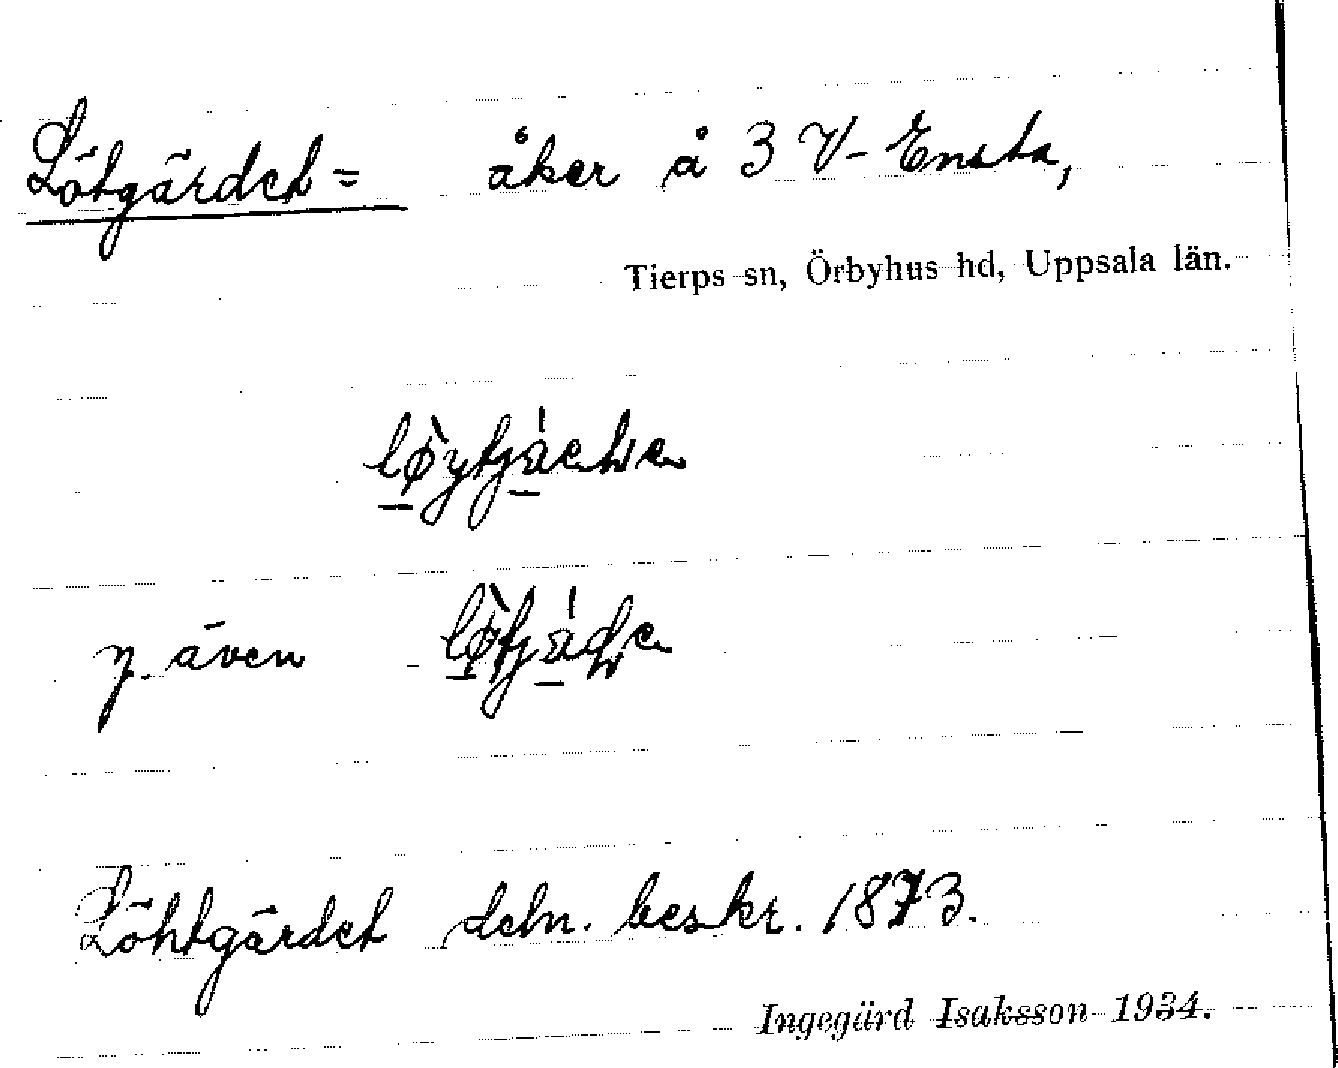 Lötgärdet = åker å 3 V-Ensta,
Tierps sn, Örbyhus hd, Uppsala län.
även
Löhtgärdet deln. beskr. 1873.
Ingegärd Isaksson 1934.